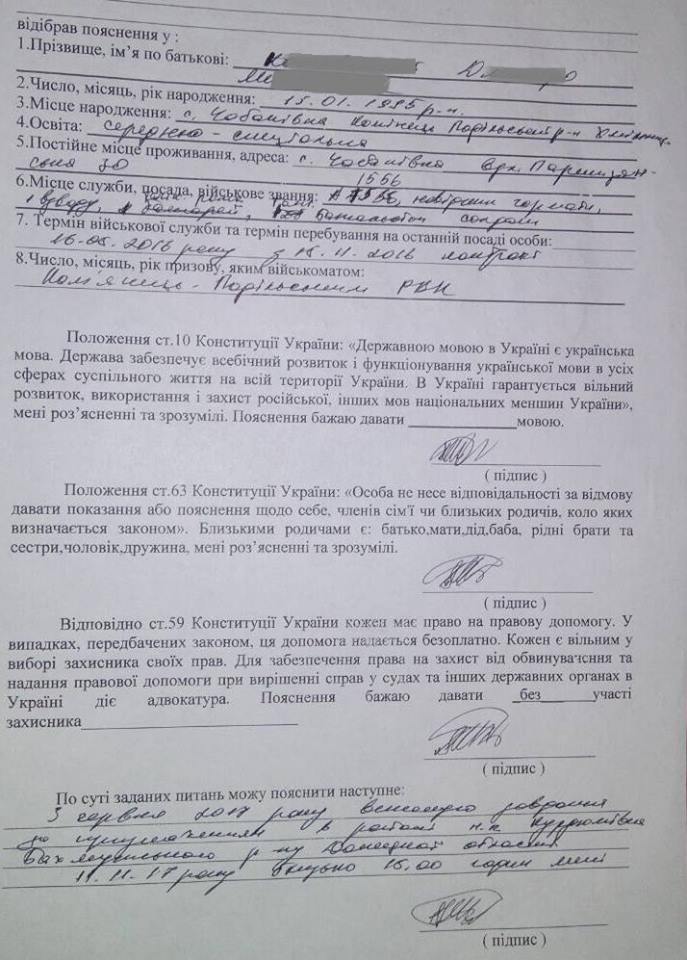 відібрав пояснення у :
1.Прізвище, ім’я по батькові:
2.Число, місяць, рік народження: 15.01.1995 р.н.
3.Місце народження: с.
4.Освіта: середньо - спеціальна
5.Постійне місце проживання, адреса: с.
6.Місце служби, посада, військове звання:
7. Термін військової служби та термін перебування на останній посаді особи:
16.05.2016 року з 15.11.2016 контракт
8.Число, місяць, рік призову, яким військоматом:
Кам'янець-Подільським РВК
Положення ст.10 Конституції України: «Державною мовою в Україні є українська
мова. Держава забезпечує всебічний розвиток і функціонування української мови в усіх
сферах суспільного життя на всій території України. В Україні гарантується вільний
розвиток, використання і захист російської, інших мов національних меншин України»,
мені роз’яснені та зрозумілі. Пояснення бажаю давати ____________мовою.
( підпис )
Положення ст.63 Конституції України: «Особа не несе відповідальності за відмову
давати показання або пояснення щодо себе, членів сім’ї чи близьких родичів, коло яких
визначається законом». Близькими родичами є: батько,мати,дід,баба, рідні брати та
сестри,чоловік,дружина, мені роз’ясненні та зрозумілі.
( підпис )
Відповідно ст.59 Конституції України кожен має право на правову допомогу. У
випадках, передбачених законом, ця допомога надається безоплатно. Кожен є вільним у
виборі захисника своїх прав. Для забезпечення права на захист від обвинувачення та
надання правової допомоги при вирішенні справ у судах та інших державних органах в
Україні діє адвокатура. Пояснення бажаю давати _без___участі
захисника
( підпис )
По суті заданих питань можу пояснити наступне:
З червня 2017 року виконую завдання
за призначенням в районі н.п.
Бахмутського р-ну Донецької області
11.11.17 року близько 15.00 годин мені
( підпис )